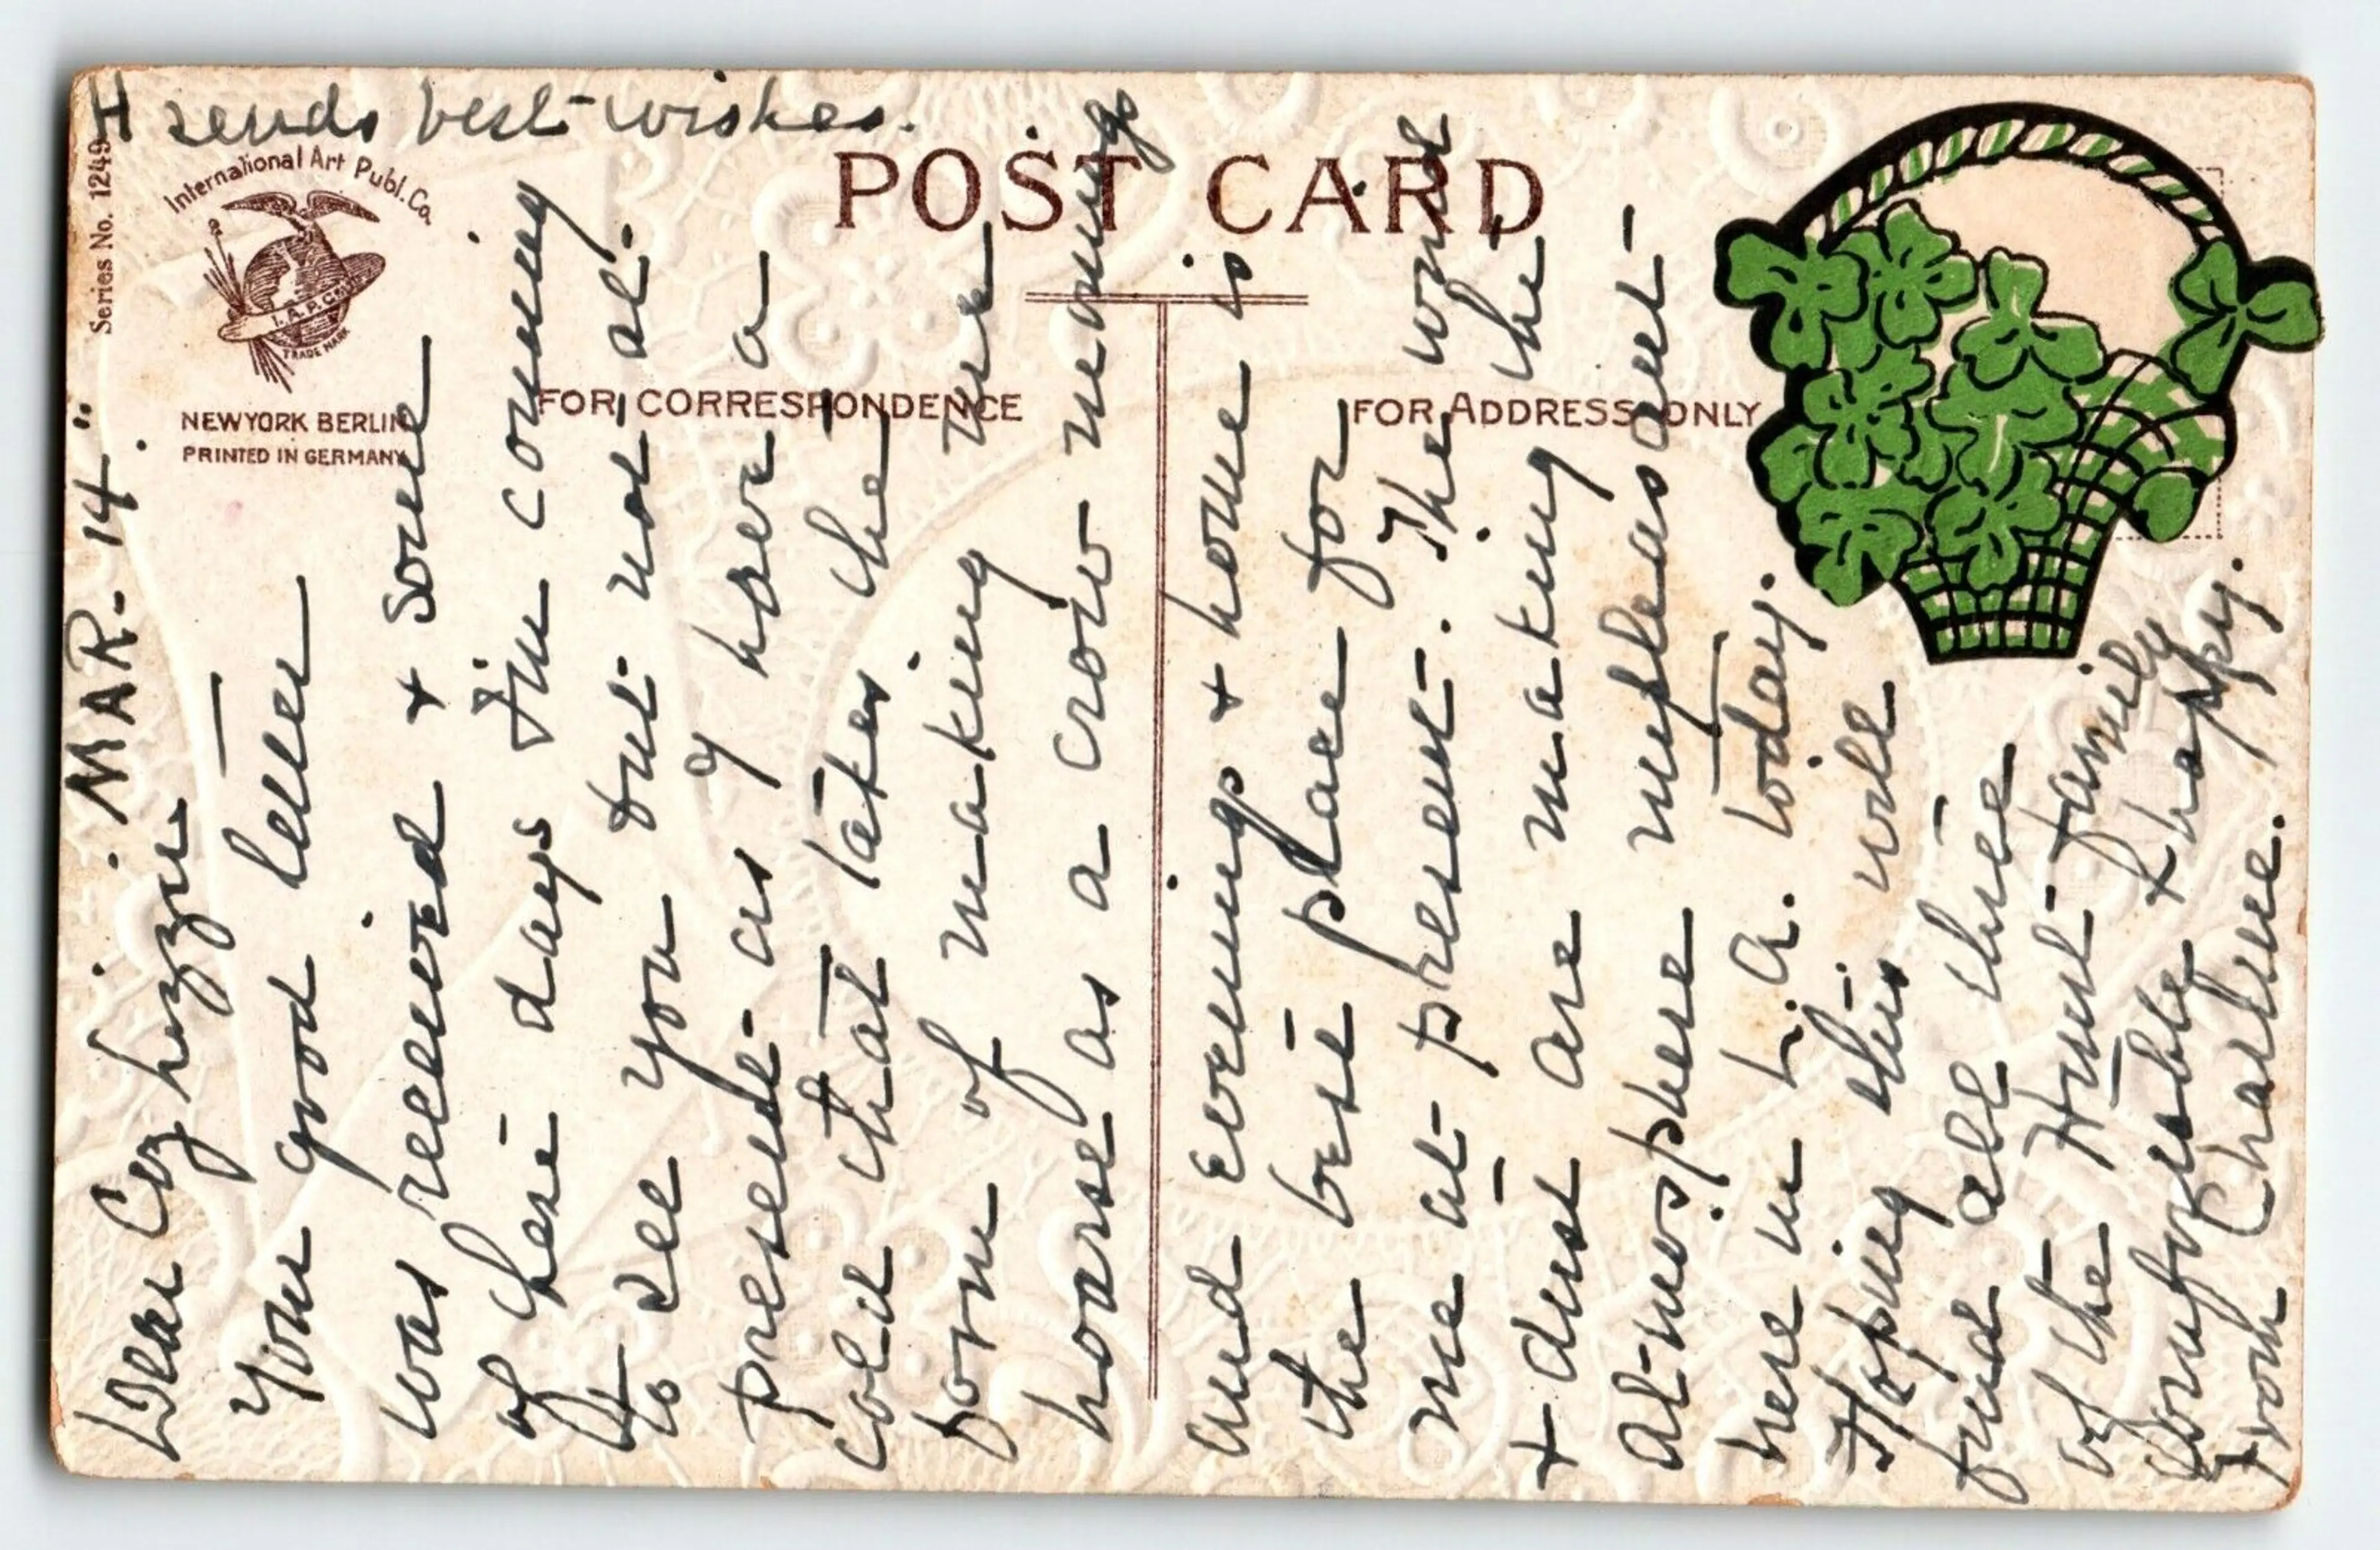 H sends best-wishes.
Series No. 1249
International Art Publ. Co.
I. A. P. Co.
TRADE MARK
NEW YORK BERLIN
PRINTED IN GERMANY
POST CARD
FOR CORRESPONDENCE
FOR ADDRESS ONLY
MAR-14".
Dear Coz Lizzie
Your good letter
was received & some
of these days I'm coming
to see you but not at-
present- as I have a
cold that takes the
form of making me
hoarse as a crow mornings
and evenings & home is
the best place for
me at- present-. The wind
& dust are making the
at-mosphere unpleasant-
here in L.A. today.
Hoping this will
find all three
of the Hunt- family
comfortable & happy.
from Charline.